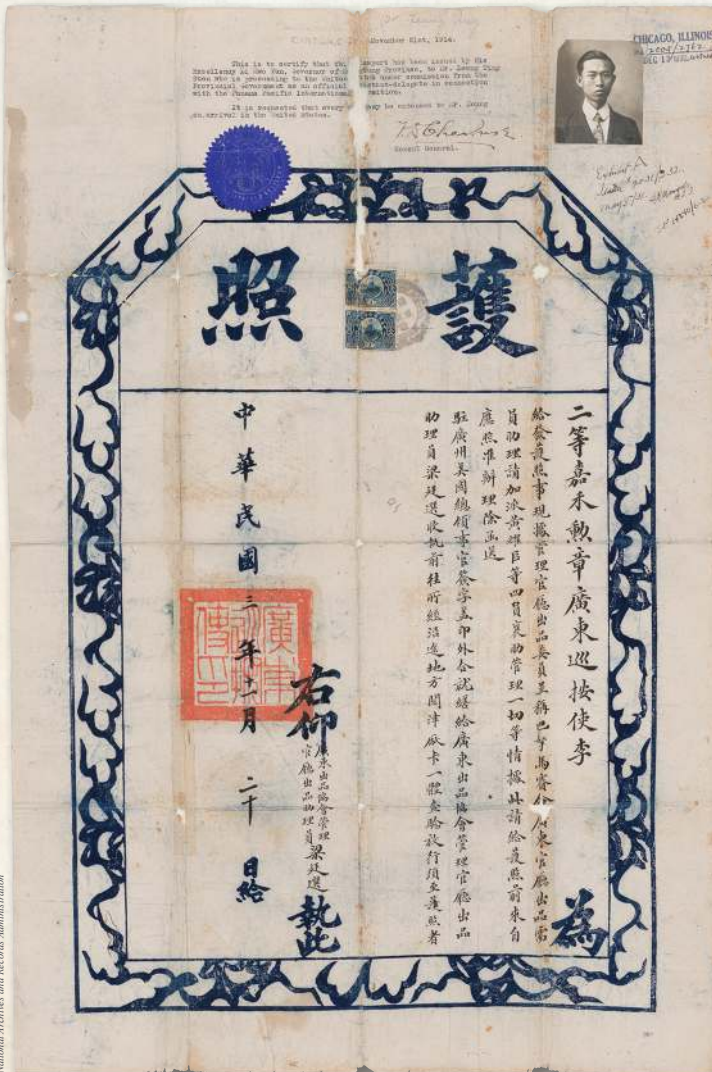 November 21st, 1914.
This is to certify that th
passport has been issued by His
Excellency
Governor of
Province, to Mr. Leung Ting
who is proceeding to the United
under commission from the
Provincial Government as an official
in connection
with the Panama Pacific International
It is requested that every
may be extended to Mr. Leung
on arrival in the United States.
Consul General.
CHICAGO, ILLINOIS
Exhibit A
護照
二等嘉禾勲章廣東巡按使李
為
給發護照事現據管理官廳出品委員呈稱巴拿馬賽會廣東官廳出品需
員助理請加派黃雄臣等四員襄助管理一切等情據此請給護照前來自
應照准辦理除函送
駐廣州美國總領事官簽字蓋印外合就繕給廣東出品協會管理官廳出品
助理員梁廷選收執前往所經沿途地方關津厰卡一體查驗放行須至護照者
右仰
廣東出品協會管理
官廳出品助理員梁廷選
執此
中華民國三年十一月二十日給
National Archives and Records Administration